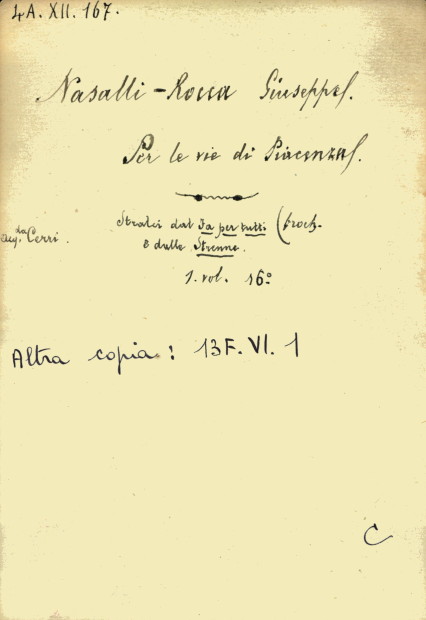 4A. XII. 167.
Nasalli-Rocca Giuseppe.
Per le vie di Piacenza.
Stralci dal Fa per tutti (broch.
da Cerri.
e dalle Strenne.
1. vol. 16º
Altra copia: 13F. VI. 1
C